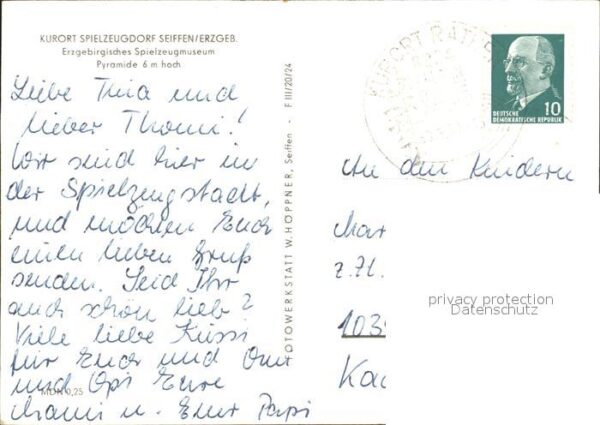 KURORT SPIELZEUGDORF SEIFFEN/ERZGEB.
Erzgebirgisches Spielzeugmuseum
Pyramide 6 m hoch
Liebe Tina und
lieber Thomi!
Wir sind hier in
der Spielzeugstadt,
und möchten Euch
einen lieben Gruß
senden. Seid Ihr
auch schön lieb?
Viele liebe Küssi
für Euch und Omi
und Opi Eure
Mami u. Euer Papi
MDN 0,25
FOTOWERKSTATT W. HOPPNER, Seiffen - F III/20/24
KURORT
10
DEUTSCHE
DEMOKRATISCHE REPUBLIK
An den Kindern
z.Zt.
privacy protection
Datenschutz
103